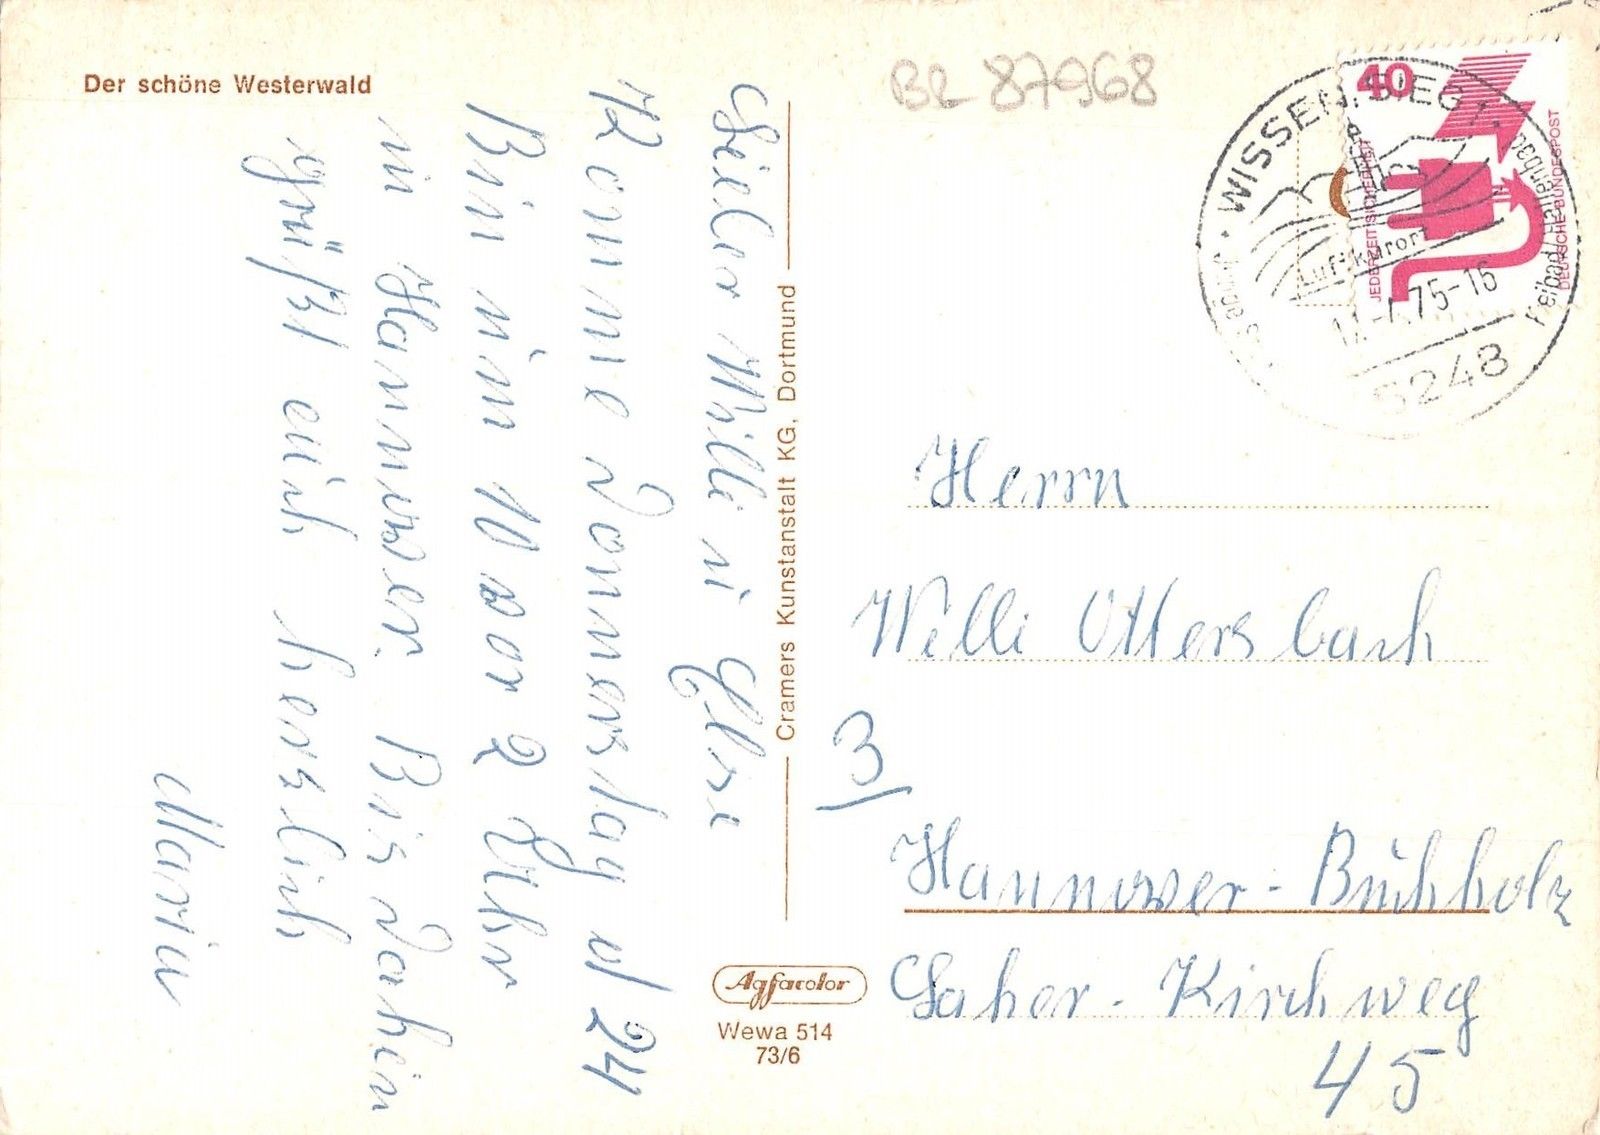 Der schöne Westerwald
BR 87968
Lieber Willi u Else
Komme Donnerstag d 24
Bin um 10 vor 2 Uhr
in Hannover. Bis dahin
grüßt euch herzlich
Maria
Cramers Kunstanstalt KG, Dortmund
Agfacolor
Wewa 514
73/6
40
JEDERZEIT SICHERHEIT
DEUTSCHE BUNDESPOST
WISSEN, SIEG
Luftkurort
75-16
5248
Herrn
Willi Ottersbach
3/
Hannover-Buchholz
Laher-Kirchweg
45